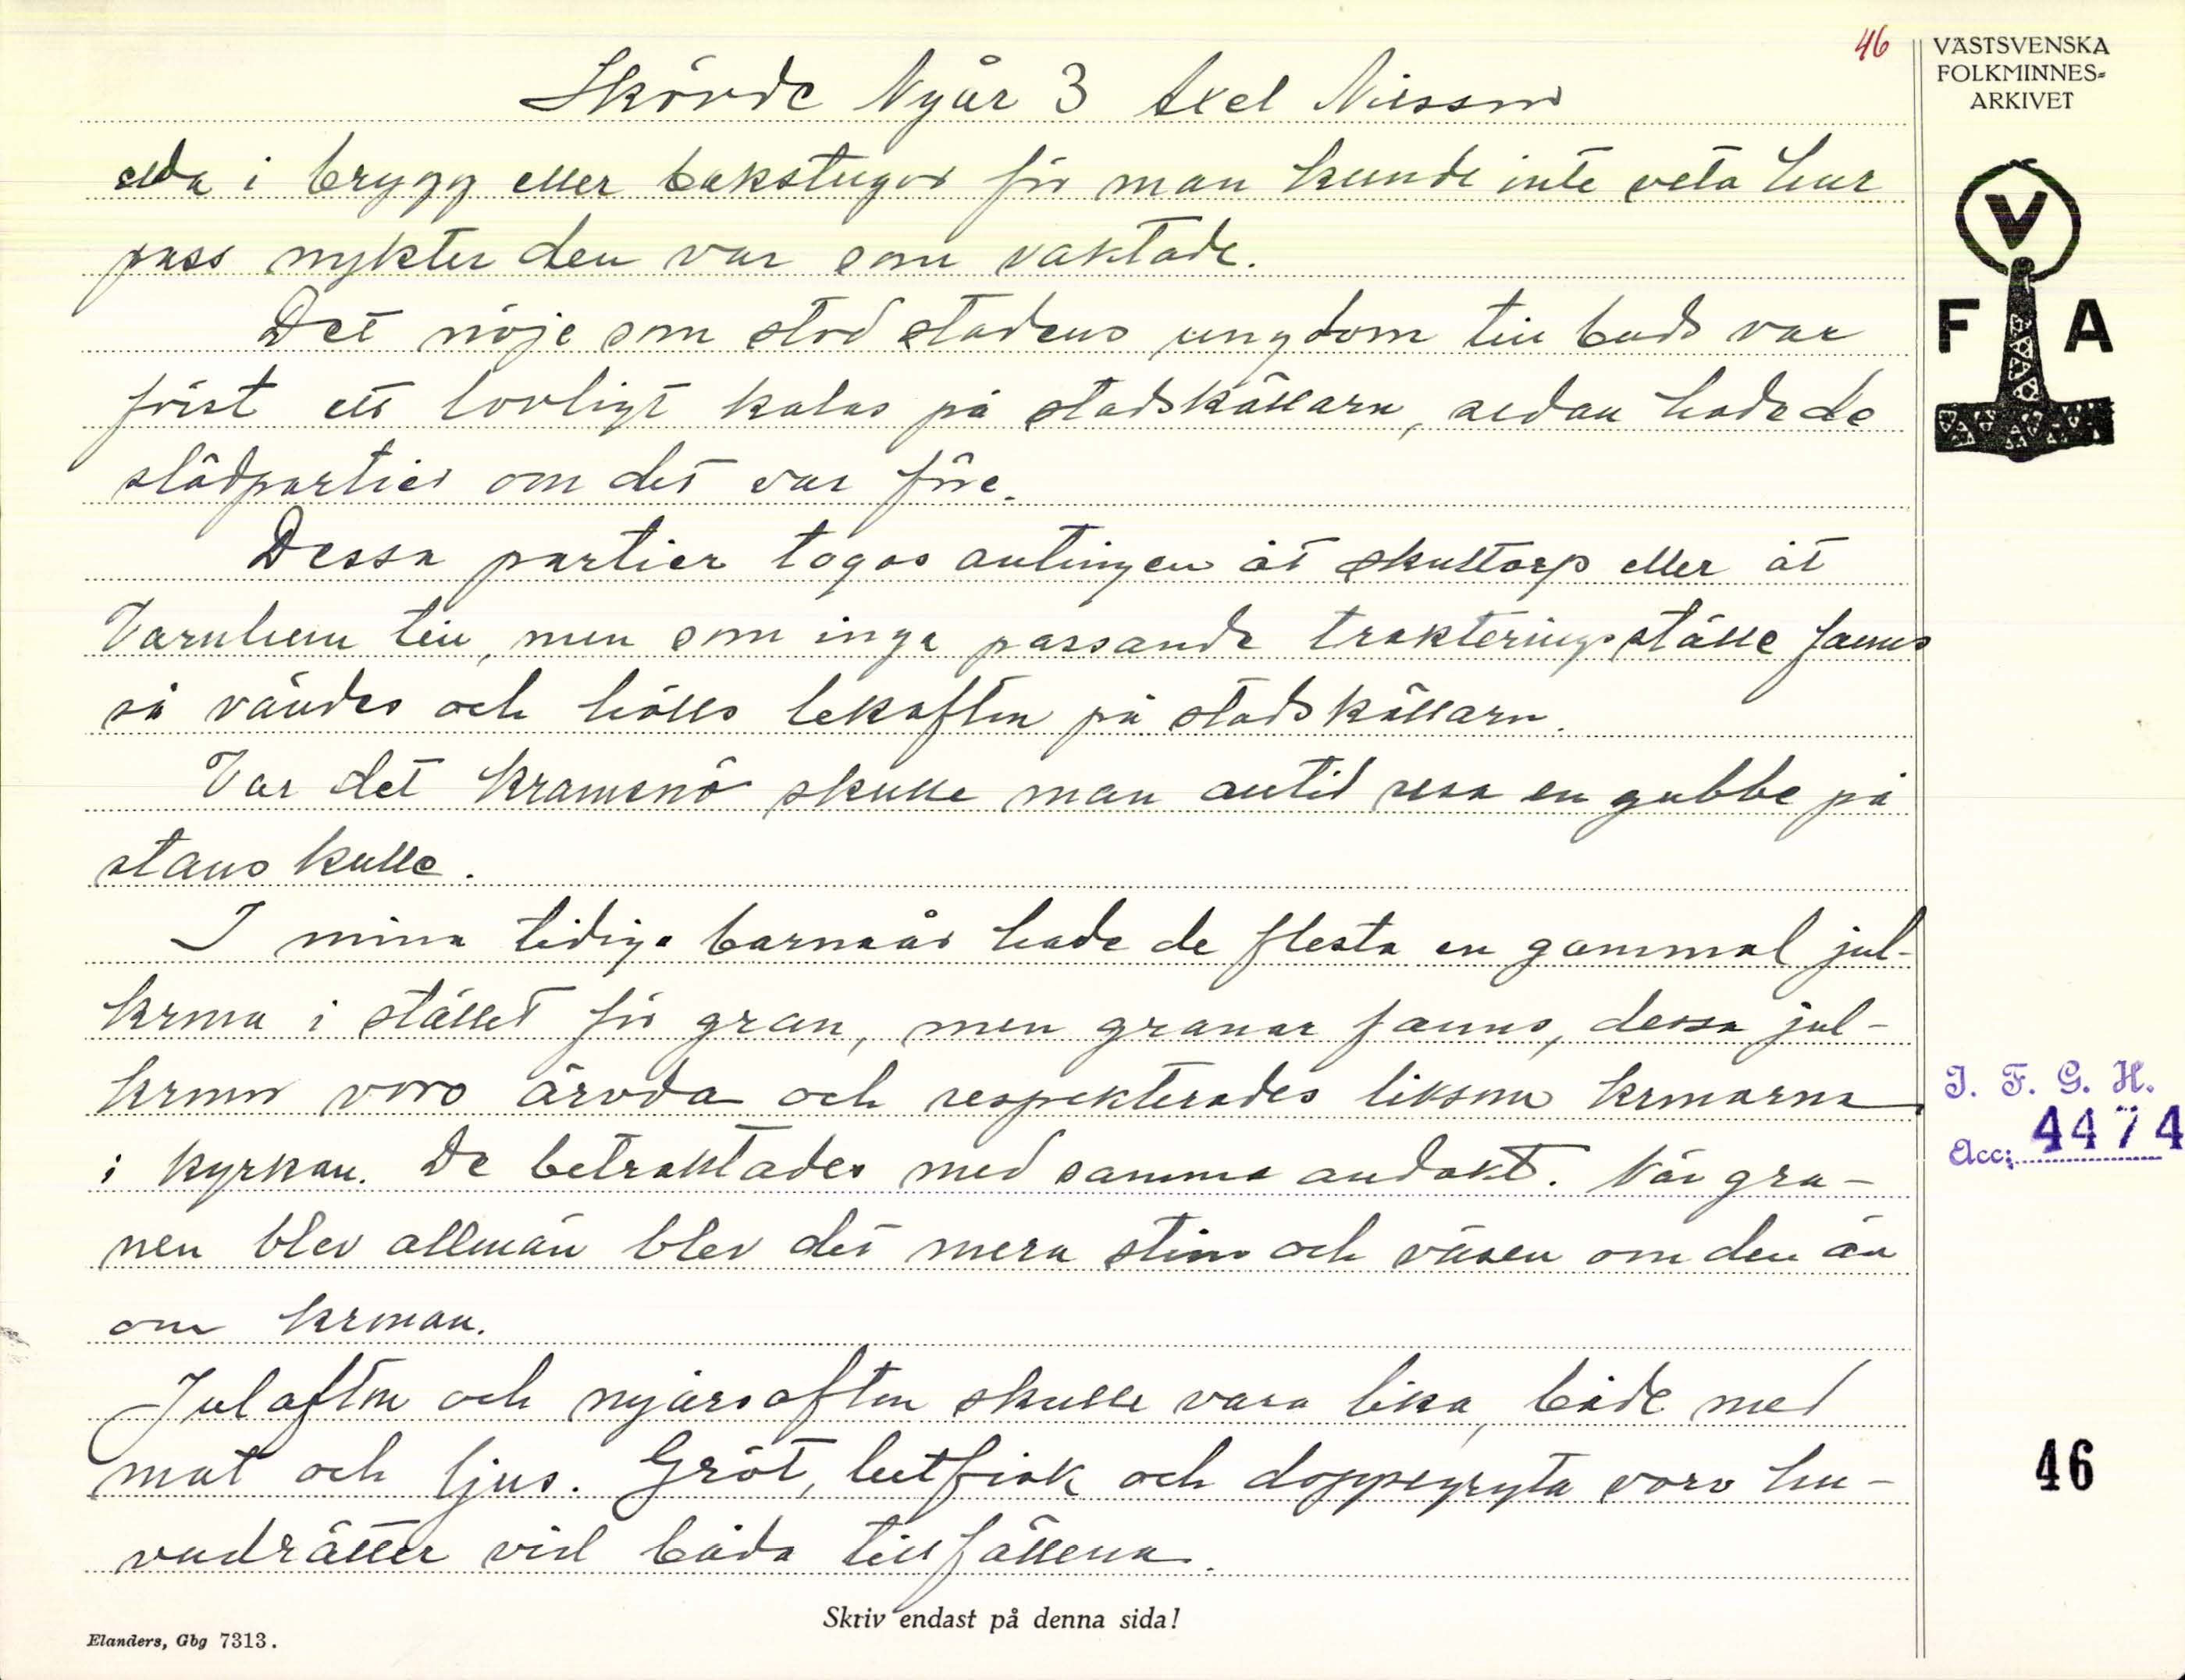 46
VÄSTSVENSKA
FOLKMINNES-
ARKIVET
Skövde Nyår 3 Axel Nilsson
elda i brygg eller bakstugor för man kunde inte veta hur
pass nykter den var som vaktade.
Det nöje som stod stadens ungdom till buds var
först ett lovligt kalas på stadskällarn, sedan hade de
slädpartier om det var före.
Dessa partier togos antingen åt Skultorp eller åt
Varnhem till, men som inga passande trakteringsställe fanns
så vändes och hölls lekafton på stadskällarn.
Var det kramsnö skulle man alltid resa en gubbe på
stans kulle.
I mina tidiga barnaår hade de flesta en gammal jul-
krona i stället för gran, men granar fanns, dessa jul-
kronor voro ärvda och respekterades liksom kronorna
i kyrkan. De betraktades med samma andakt. När gra-
nen blev allmän blev det mera stim och väsen om den än
om kronan.
Julafton och nyårsafton skulle vara lika, både med
mat och ljus. Gröt, lutfisk och doppegryta voro hu-
vudrätter vid båda tillfällena.
V
F A
I. F. G. H.
Acc: 4474
46
Skriv endast på denna sida!
Elanders, Gbg 7313.